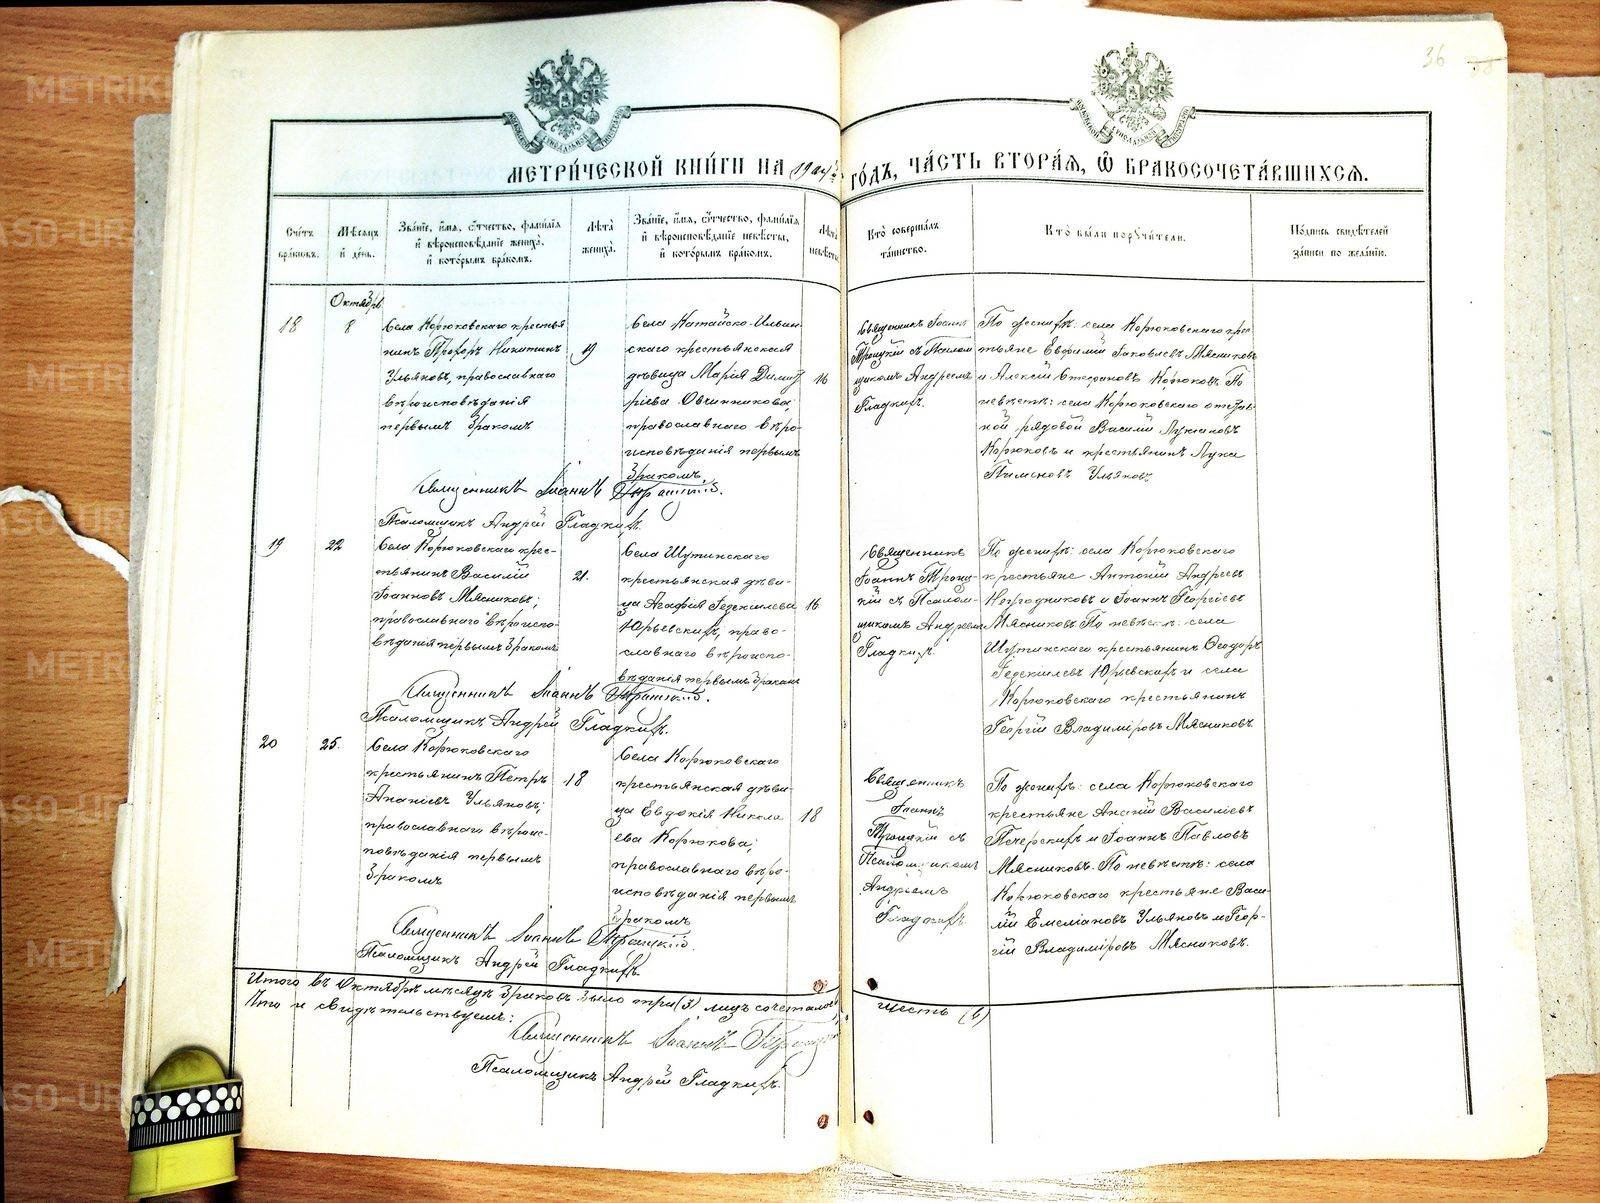 36
МЕТРИ́ЧЕСКОЙ КНИ́ГИ НА 1904 ГО́ДЪ, ЧА́СТЬ ВТОРА́Я, Ѡ БРАКОСОЧЕТА́ВШИХСЯ.
Сче́тъ
бра́ковъ.
Мѣ́сяцъ
и҆ де́нь.
Зва́нїе, и҆́мя, ѻ҆́тчество, фами́лїя
и҆ вѣроисповѣ́данїе жениха̀,
и҆ кото́рымъ бра́комъ.
Лѣта̀
жениха̀.
Зва́нїе, и҆́мя, ѻ҆́тчество, фами́лїя
и҆ вѣроисповѣ́данїе невѣ́сты,
и҆ кото́рымъ бра́комъ.
Лѣта̀
невѣ́сты
Кто̀ соверша́лъ
та́инство.
Кто̀ бы́ли порꙋчи́тели.
По́дпись свидѣ́телей
за́писи по жела́нїю.
Октябрь
18
8
Села Корюковскаго крестья
нинъ Прохоръ Никитинъ
Ульяновъ, православнаго
вѣроисповѣданія
первымъ бракомъ
19
Села Катайско-Ильин
скаго крестьянская
дѣвица Марія Димит
ріева Овчинникова,
православнаго вѣро-
исповѣданія первымъ
бракомъ.
16
Священникъ Іоаннъ
Троицкій съ Псалом
щикомъ Андреемъ
Гладкихъ.
По женихѣ: села Корюковскаго крес
тьяне Евфимій Іаковлевъ Мясниковъ
и Алексій Стефановъ Корюковъ По
невѣстѣ: села Корюковскаго отстав
ной рядовой Василій Лукіановъ
Корюковъ и крестьянинъ Лука
Пименовъ Ульяновъ.
Священникъ Іоаннъ Троицкій.
Псаломщикъ Андрей Гладкихъ.
19
22
Села Корюковскаго крес-
тьянинъ Василій
Іоанновъ Мясниковъ;
православнаго вѣроиспо-
вѣданія первымъ бракомъ
21.
Села Шутинскаго
крестьянская дѣви-
ца Агафія Гедеонлева
Юрьевскихъ, право-
славнаго вѣроиспо-
вѣданія первымъ бракомъ
16
Священникъ
Іоаннъ Троиц-
кій съ Псалом-
щикомъ Андреемъ
Гладкихъ.
По женихѣ: села Корюковскаго
крестьяне Антоній Андреевъ
и Іоаннъ Георгіевъ
Мясниковъ По невѣстѣ: села
Шутинскаго крестьянинъ Ѳеодоръ
Юрьевскихъ и села
Корюковскаго крестьянинъ
Георгій Владиміровъ Мясниковъ.
Священникъ Іоаннъ Троицкій.
Псаломщикъ Андрей Гладкихъ.
20
25.
Села Корюковскаго
крестьянинъ Петръ
Ананіевъ Ульяновъ;
православнаго вѣроис-
повѣданія первымъ
бракомъ
18
Села Корюковскаго
крестьянская дѣви-
ца Евдокія Никола
ева Корюкова;
православнаго вѣро-
исповѣданія первымъ
бракомъ
18
Священникъ
Іоаннъ
Троицкій съ
Псаломщикомъ
Андреемъ
Гладкихъ.
По женихѣ: села Корюковскаго
крестьяне Ананій Василіевъ
Печерскихъ и Іоаннъ Павловъ
Мясниковъ. По невѣстѣ: села
Корюковскаго крестьяне Васи-
лій Емеліановъ Ульяновъ и Геор-
гій Владиміровъ Мясниковъ.
Священникъ Іоаннъ Троицкій.
Псаломщикъ Андрей Гладкихъ.
Итого въ Октябрѣ мѣсяцѣ браковъ было три (3), лицъ сочеталось шесть (6)
Что и свидѣтельствуемъ:
Священникъ Іоаннъ Троицкій
Псаломщикъ Андрей Гладкихъ.